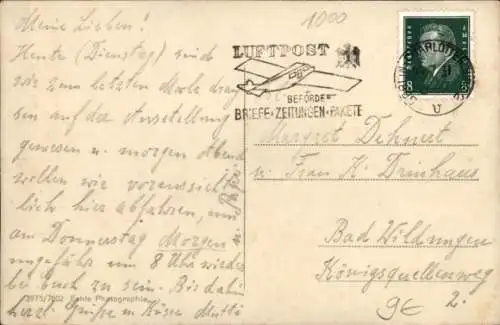 Meine Lieben!
Heute (Dienstag) sind
wir zum letzten Male drau
sen auf der Ausstellung
gewesen u. morgen Abend
wollen wir voraussicht-
lich hier abfahren, um
am Donnerstag Morgen
ungefähr um 8 Uhr wieder
bei Euch zu sein. Bis dahin
herzl. Grüße u. Küsse Mutti
2975/7602 Echte Photographie
1000
LUFTPOST
BEFÖRDERT
BRIEFE-ZEITUNGEN-PAKETE
8 8
Margret Dehnert
u. Frau K. Drinhaus
Bad Wildungen
Königsquellenweg
2.